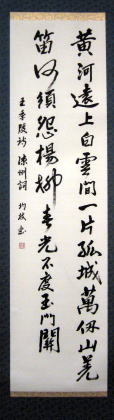 黃河遠上白雲間一片孤城萬仞山羌
笛何須怨楊柳春光不度玉門關
王季陵詩 涼州詞